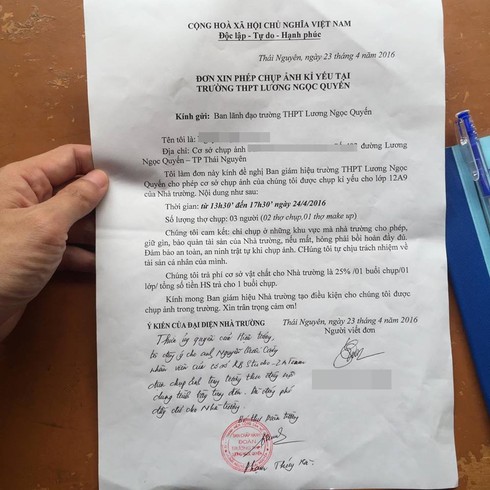 CỘNG HOÀ XÃ HỘI CHỦ NGHĨA VIỆT NAM
Độc lập - Tự do - Hạnh phúc
Thái Nguyên, ngày 23 tháng 4 năm 2016
ĐƠN XIN PHÉP CHỤP ẢNH KỈ YẾU TẠI
TRƯỜNG THPT LƯƠNG NGỌC QUYẾN
Kính gửi: Ban lãnh đạo trường THPT Lương Ngọc Quyến
Tên tôi là:
Địa chỉ: Cơ sở chụp ảnh đường Lương
Ngọc Quyến – TP Thái Nguyên
Tôi làm đơn này kính đề nghị Ban giám hiệu trường THPT Lương Ngọc
Quyến cho phép cơ sở chụp ảnh của chúng tôi được chụp kỉ yếu cho lớp 12A9
của Nhà trường. Nội dung như sau:
Thời gian: từ 13h30' đến 17h30' ngày 24/4/2016
Số lượng thợ chụp: 03 người (02 thợ chụp,01 thợ make up)
Chúng tôi cam kết: chỉ chụp ở những khu vực mà nhà trường cho phép,
giữ gìn, bảo quản tài sản của Nhà trường, nếu mất, hỏng phải bồi hoàn đầy đủ.
Đảm bảo an toàn, an ninh trật tự khi chụp ảnh. CHúng tôi tự chịu trách nhiệm về
tài sản cá nhân của mình.
Chúng tôi trả phí cơ sở vật chất cho Nhà trường là 25% /01 buổi chụp/01
lớp/ tổng số tiền HS trả cho 1 buổi chụp.
Kính mong Ban giám hiệu Nhà trường tạo điều kiện cho chúng tôi được
chụp ảnh trong trường. Xin trân trọng cảm ơn!
Ý KIẾN CỦA ĐẠI DIỆN NHÀ TRƯỜNG
Thái Nguyên, ngày 23 tháng 4 năm 2016
Người viết đơn
Thừa ủy quyền của Hiệu trưởng
tôi đồng ý cho anh Nguyễn
nhân viên của cơ sở Studio
chụp ảnh tại trường theo đúng nội
dung trình bày trên. Đã đóng phí
đầy đủ cho Nhà trường.
ĐOÀN
Phạm Thúy Hà